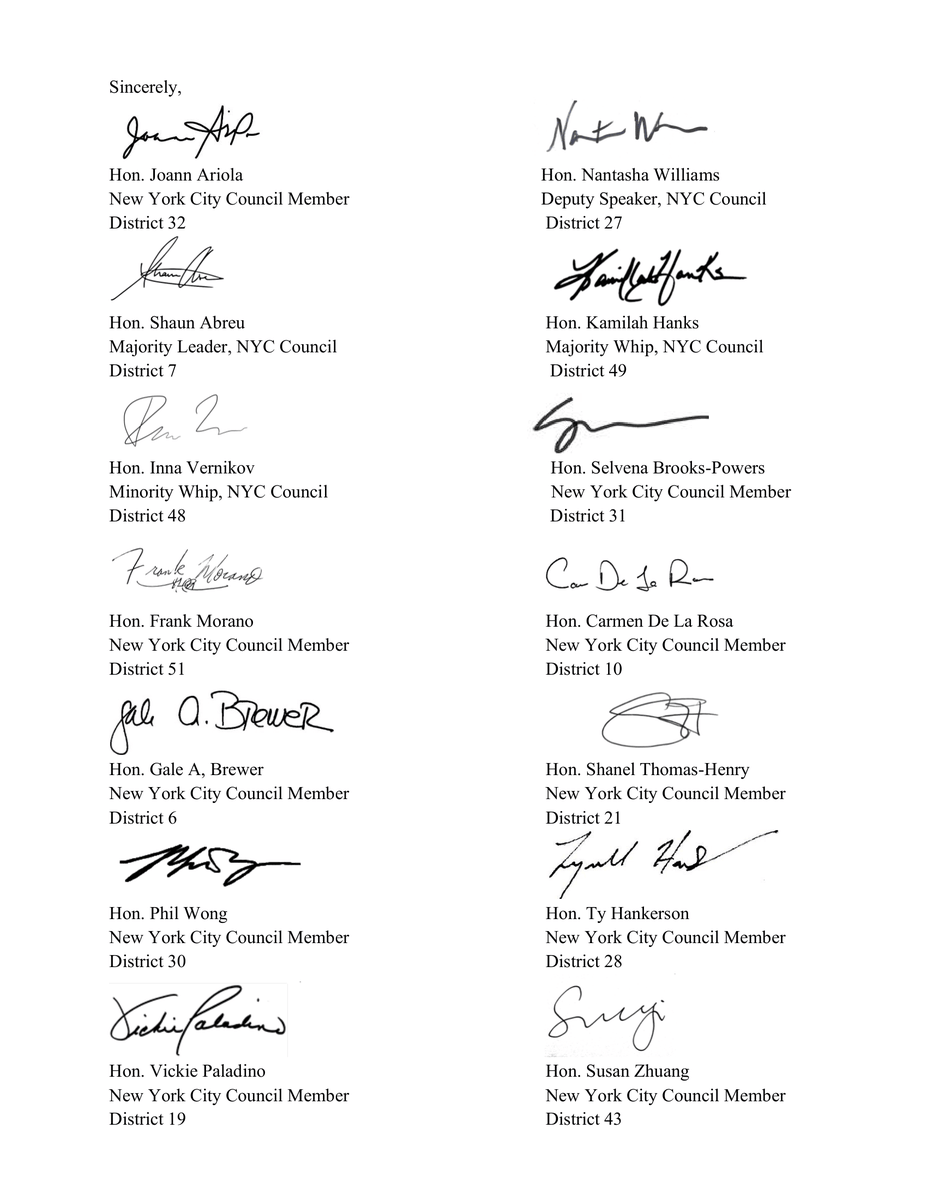 Sincerely,
Hon. Joann Ariola
New York City Council Member
District 32
Hon. Nantasha Williams
Deputy Speaker, NYC Council
District 27
Hon. Shaun Abreu
Majority Leader, NYC Council
District 7
Hon. Kamilah Hanks
Majority Whip, NYC Council
District 49
Hon. Inna Vernikov
Minority Whip, NYC Council
District 48
Hon. Selvena Brooks-Powers
New York City Council Member
District 31
Frank Morano
Hon. Frank Morano
New York City Council Member
District 51
Hon. Carmen De La Rosa
New York City Council Member
District 10
Gale A. Brewer
Hon. Gale A, Brewer
New York City Council Member
District 6
Hon. Shanel Thomas-Henry
New York City Council Member
District 21
Hon. Phil Wong
New York City Council Member
District 30
Hon. Ty Hankerson
New York City Council Member
District 28
Vickie Paladino
Hon. Vickie Paladino
New York City Council Member
District 19
Hon. Susan Zhuang
New York City Council Member
District 43